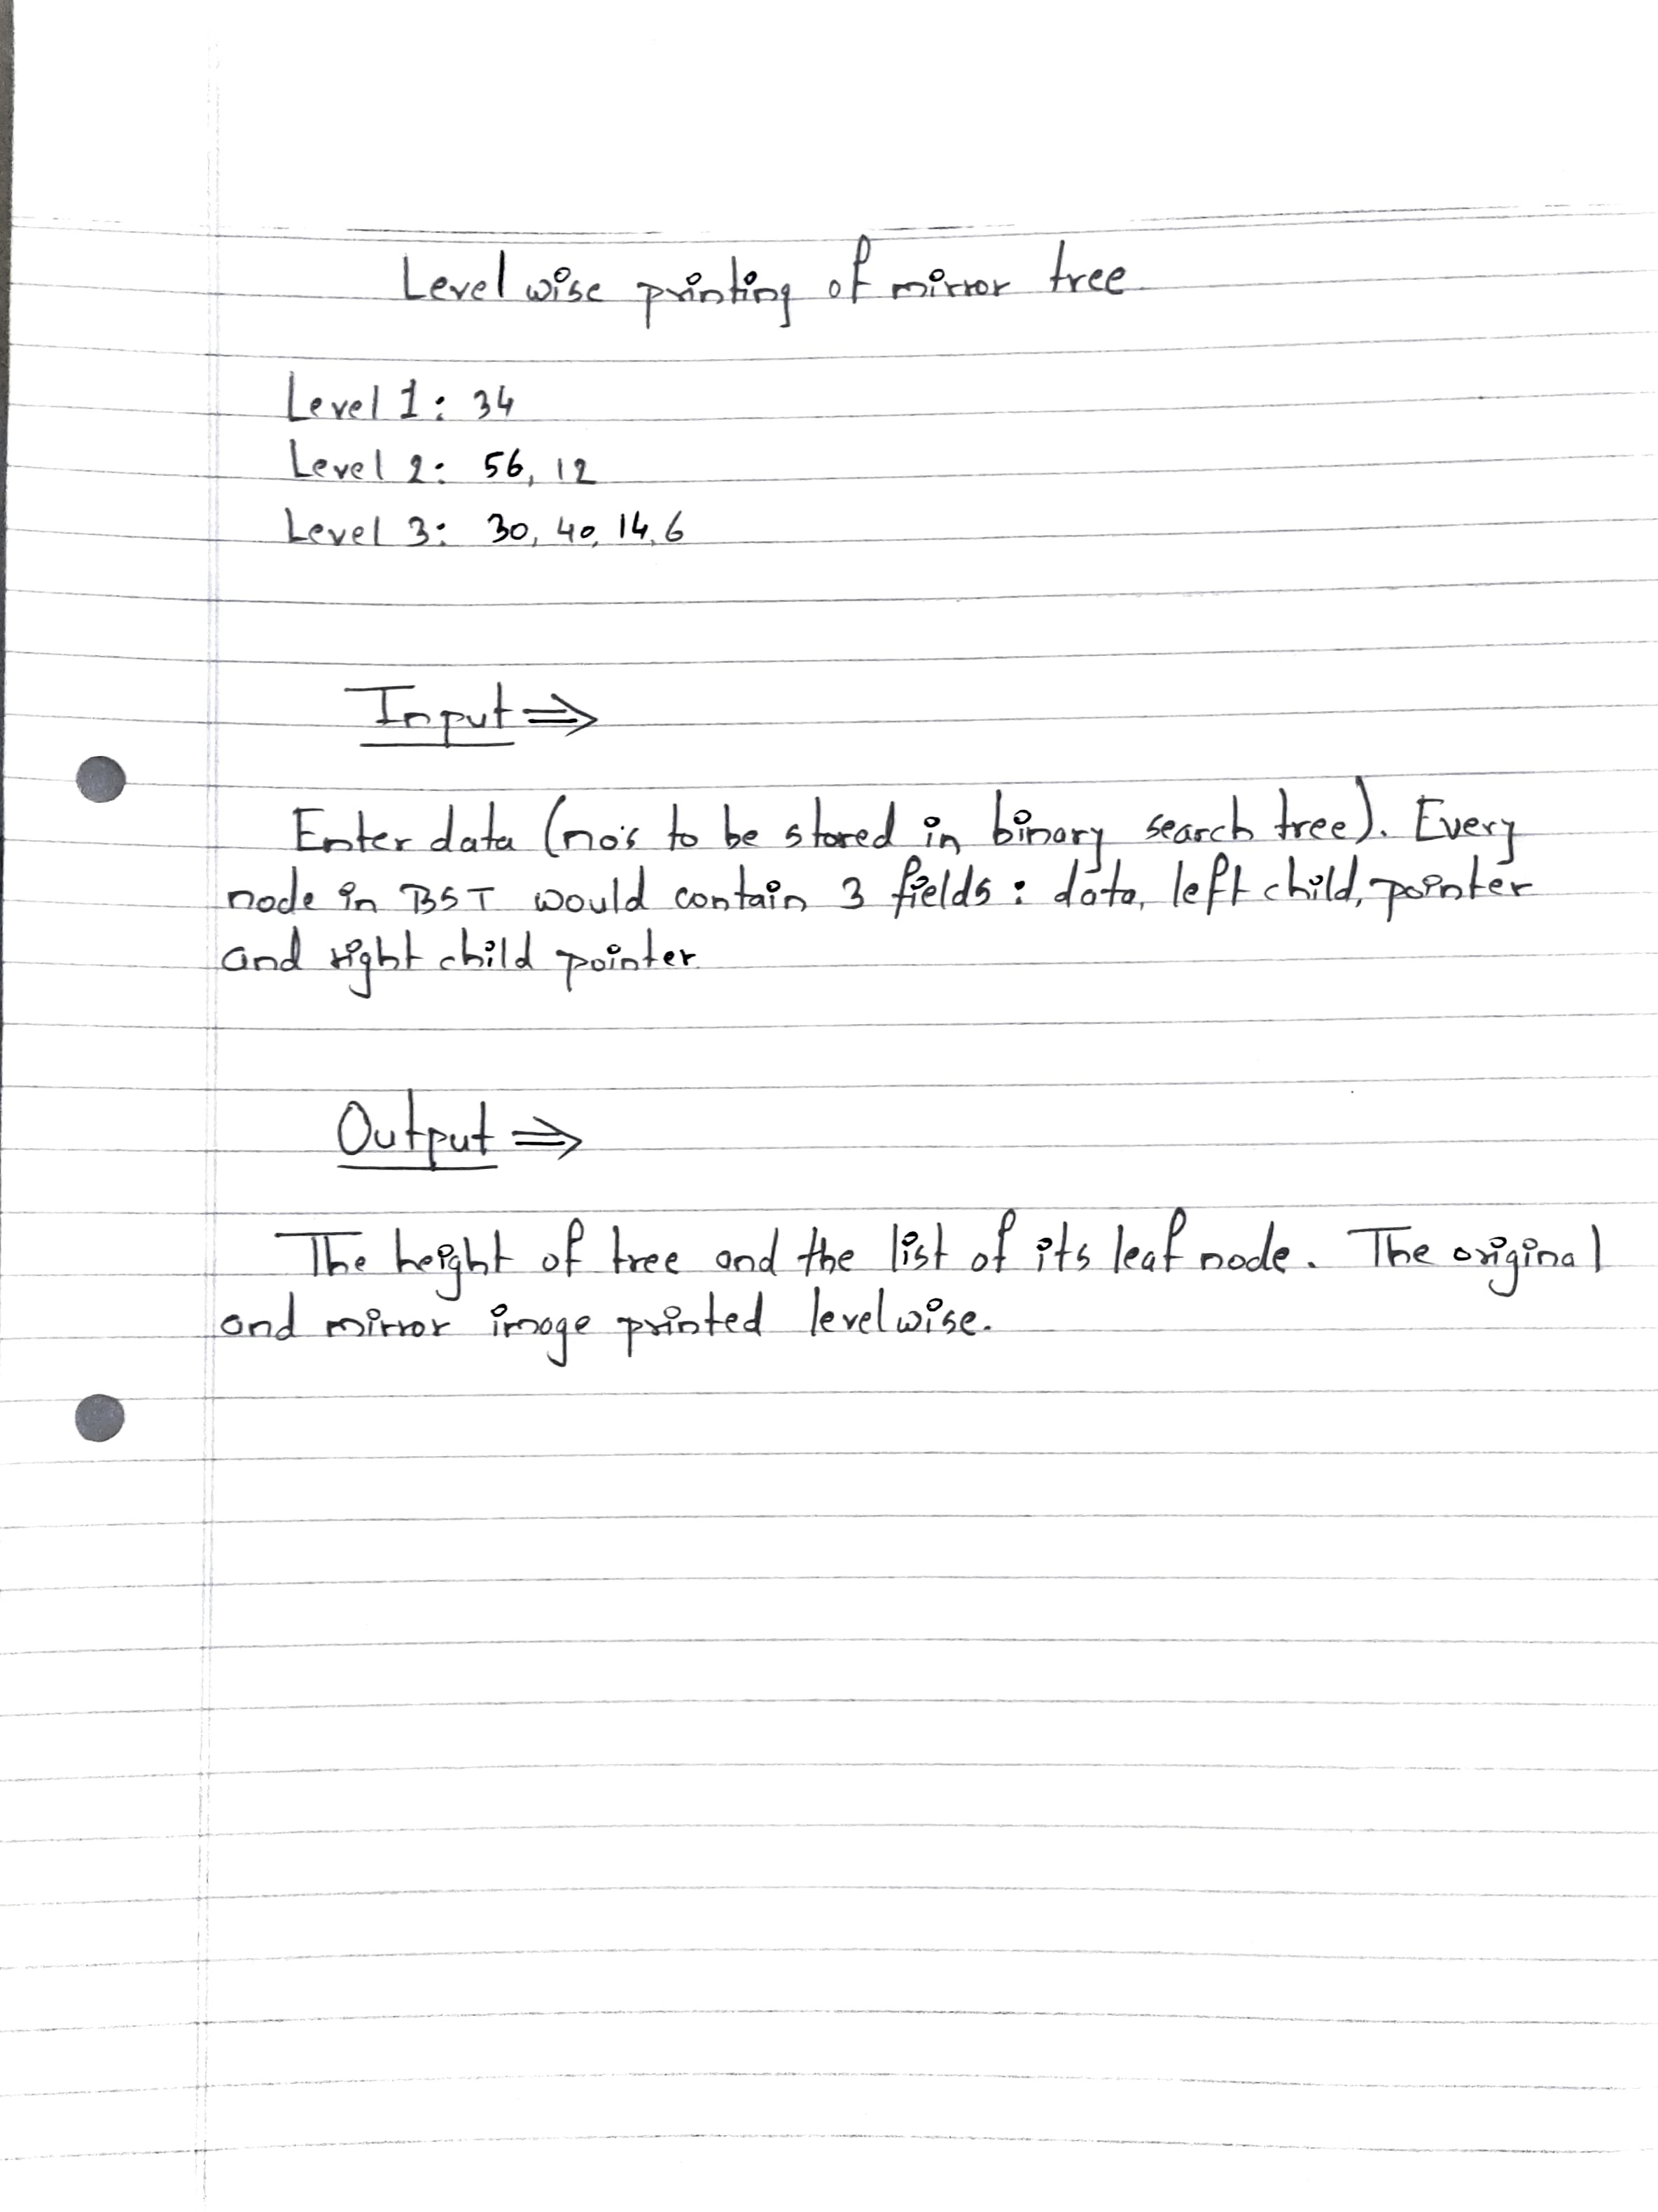 Level wise printing of mirror tree
Level 1: 34
Level 2: 56, 12
Level 3: 30, 40, 14, 6
Input ⇒
Enter data (no's to be stored in binary search tree). Every
node in BST would contain 3 fields: data, left child, pointer
and right child pointer.
Output ⇒
The height of tree and the list of its leaf node. The original
and mirror image printed levelwise.